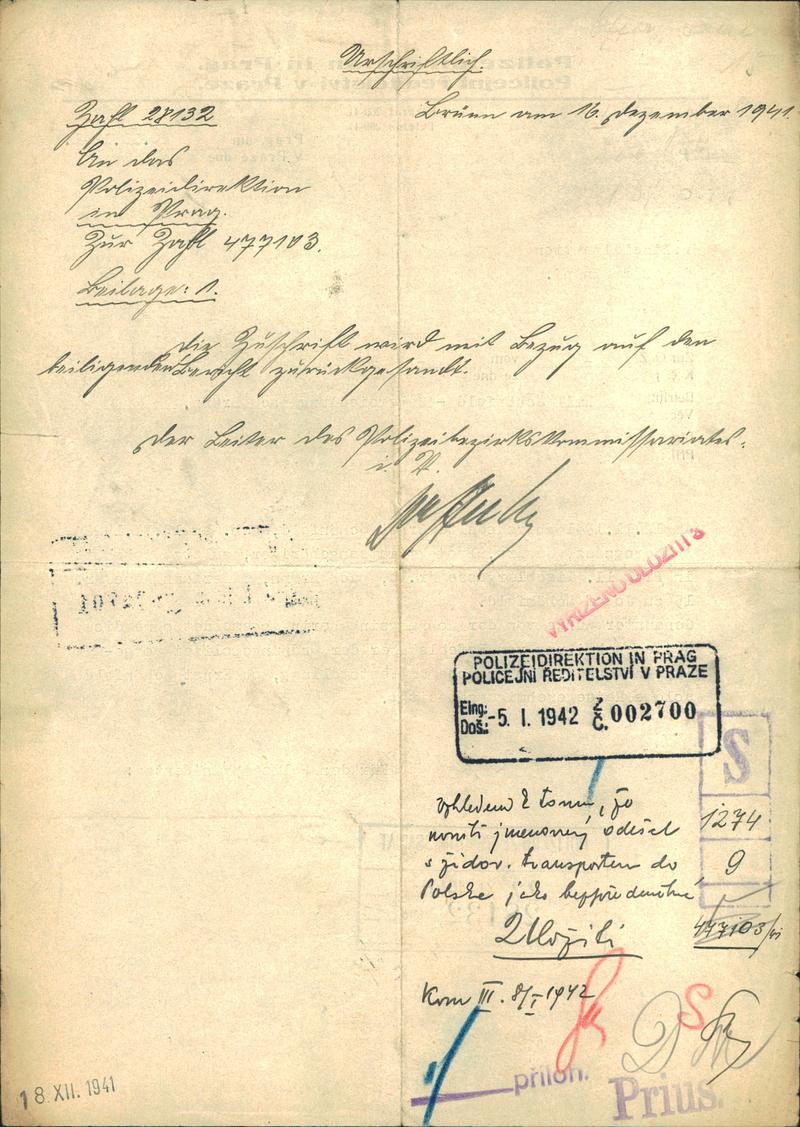 Urschriftlich.
Zahl 28132
Brünn am 16. Dezember 1941.
An das
Polizeidirektion
in Prag.
Zur Zahl 477103.
Beilage: 1.
Die Zuschrift wird mit Bezug auf den
beiligenden Bericht zurückgesandt.
Der Leiter des Polizeibezirkskommissariates:
i. V.
VYŘÍZENO ULOŽITI S
POLIZEIDIREKTION IN PRAG
POLICEJNÍ ŘEDITELSTVÍ V PRAZE
Eing.:
Doš.: -5. I. 1942 Z Č. 002700
S
1274
9
vzhledem k tomu, že
jmenovaný odešel
s židov. transportem do
Polska jako bezpředmětné
Uložiti
477103/
Kom III. 8/I 1942
S
příloh.
Prius.
18. XII. 1941